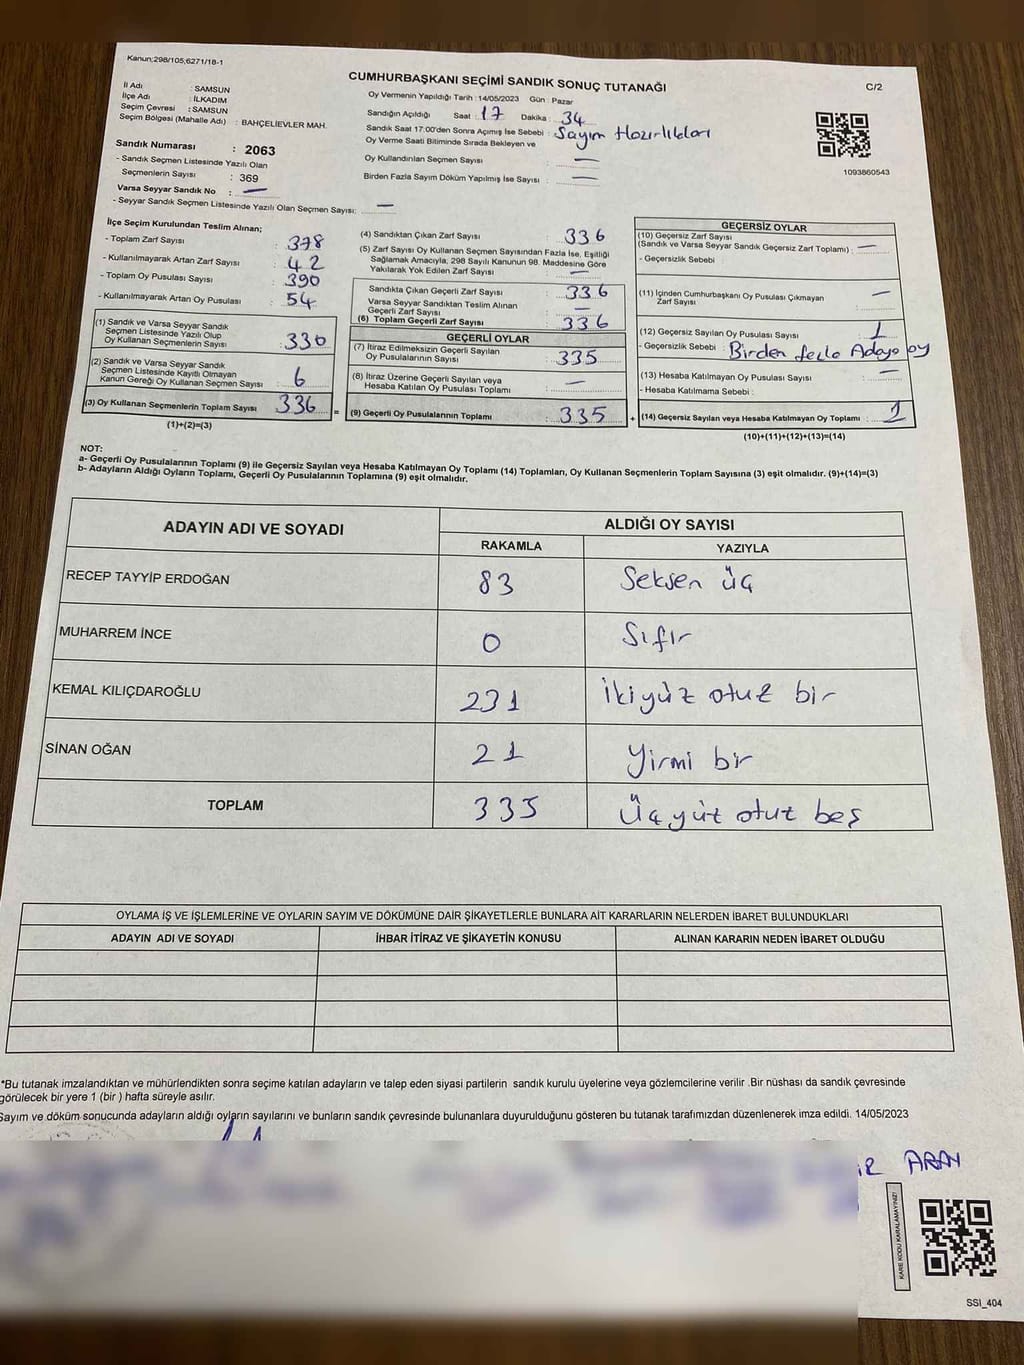 Kanun;298/105,6271/18-1
CUMHURBAŞKANI SEÇİMİ SANDIK SONUÇ TUTANAĞI
C/2
İl Adı : SAMSUN
İlçe Adı : İLKADIM
Seçim Çevresi : SAMSUN
Seçim Bölgesi (Mahalle Adı) : BAHÇELİEVLER MAH.
Sandık Numarası : 2063
- Sandık Seçmen Listesinde Yazılı Olan
Seçmenlerin Sayısı : 369
Varsa Seyyar Sandık No : —
- Seyyar Sandık Seçmen Listesinde Yazılı Olan Seçmen Sayısı: —
Oy Vermenin Yapıldığı Tarih : 14/05/2023 Gün : Pazar
Sandığın Açıldığı Saat : 17 Dakika : 34
Sandık Saat 17.00'den Sonra Açımış İse Sebebi : Sayım Hazırlıkları
Oy Verme Saati Bitiminde Sırada Bekleyen ve
Oy Kullandırılan Seçmen Sayısı : —
Birden Fazla Sayım Döküm Yapılmış İse Sayısı : —
1093860543
İlçe Seçim Kurulundan Teslim Alınan;
- Toplam Zarf Sayısı : 378
- Kullanılmayarak Artan Zarf Sayısı : 42
- Toplam Oy Pusulası Sayısı : 390
- Kullanılmayarak Artan Oy Pusulası : 54
(1) Sandık ve Varsa Seyyar Sandık
Seçmen Listesinde Yazılı Olup
Oy Kullanan Seçmenlerin Sayısı : 330
(2) Sandık ve Varsa Seyyar Sandık
Seçmen Listesinde Kayıtlı Olmayan
Kanun Gereği Oy Kullanan Seçmen Sayısı : 6
(3) Oy Kullanan Seçmenlerin Toplam Sayısı : 336 =
(1)+(2)=(3)
(4) Sandıktan Çıkan Zarf Sayısı : 336
(5) Zarf Sayısı Oy Kullanan Seçmen Sayısından Fazla İse, Eşitliği
Sağlamak Amacıyla, 298 Sayılı Kanunun 98. Maddesine Göre
Yakılarak Yok Edilen Zarf Sayısı : —
Sandıkta Çıkan Geçerli Zarf Sayısı : 336
Varsa Seyyar Sandıktan Teslim Alınan
Geçerli Zarf Sayısı : —
(6) Toplam Geçerli Zarf Sayısı : 336
GEÇERLİ OYLAR
(7) İtiraz Edilmeksizin Geçerli Sayılan
Oy Pusulalarının Sayısı : 335
(8) İtiraz Üzerine Geçerli Sayılan veya
Hesaba Katılan Oy Pusulaları Toplamı : —
(9) Geçerli Oy Pusulalarının Toplamı : 335 +
GEÇERSİZ OYLAR
(10) Geçersiz Zarf Sayısı
(Sandık ve Varsa Seyyar Sandık Geçersiz Zarf Toplamı) : —
- Geçersizlik Sebebi :
(11) İçinden Cumhurbaşkanı Oy Pusulası Çıkmayan
Zarf Sayısı : —
(12) Geçersiz Sayılan Oy Pusulası Sayısı : 1
- Geçersizlik Sebebi : Birden fazla Adaya oy
(13) Hesaba Katılmayan Oy Pusulası Sayısı : —
- Hesaba Katılmama Sebebi :
(14) Geçersiz Sayılan veya Hesaba Katılmayan Oy Toplamı : 1
(10)+(11)+(12)+(13)=(14)
NOT:
a- Geçerli Oy Pusulalarının Toplamı (9) ile Geçersiz Sayılan veya Hesaba Katılmayan Oy Toplamı (14) Toplamları, Oy Kullanan Seçmenlerin Toplam Sayısına (3) eşit olmalıdır. (9)+(14)=(3)
b- Adayların Aldığı Oyların Toplamı, Geçerli Oy Pusulalarının Toplamına (9) eşit olmalıdır.
ADAYIN ADI VE SOYADI
ALDIĞI OY SAYISI
RAKAMLA YAZIYLA
RECEP TAYYİP ERDOĞAN 83 Seksen üç
MUHARREM İNCE 0 Sıfır
KEMAL KILIÇDAROĞLU 231 İkiyüz otuz bir
SİNAN OĞAN 21 Yirmi bir
TOPLAM 335 Üçyüz otuz beş
OYLAMA İŞ VE İŞLEMLERİNE VE OYLARIN SAYIM VE DÖKÜMÜNE DAİR ŞİKAYETLERLE BUNLARA AİT KARARLARIN NELERDEN İBARET BULUNDUKLARI
ADAYIN ADI VE SOYADI İHBAR İTİRAZ VE ŞİKAYETİN KONUSU ALINAN KARARIN NEDEN İBARET OLDUĞU
*Bu tutanak imzalandıktan ve mühürlendikten sonra seçime katılan adayların ve talep eden siyasi partilerin sandık kurulu üyelerine veya gözlemcilerine verilir .Bir nüshası da sandık çevresinde
görülecek bir yere 1 (bir ) hafta süreyle asılır.
Sayım ve döküm sonucunda adayların aldığı oyların sayılarını ve bunların sandık çevresinde bulunanlara duyurulduğunu gösteren bu tutanak tarafımızdan düzenlenerek imza edildi. 14/05/2023
KARE KODU KARALAMAYINIZ!
SSI_404